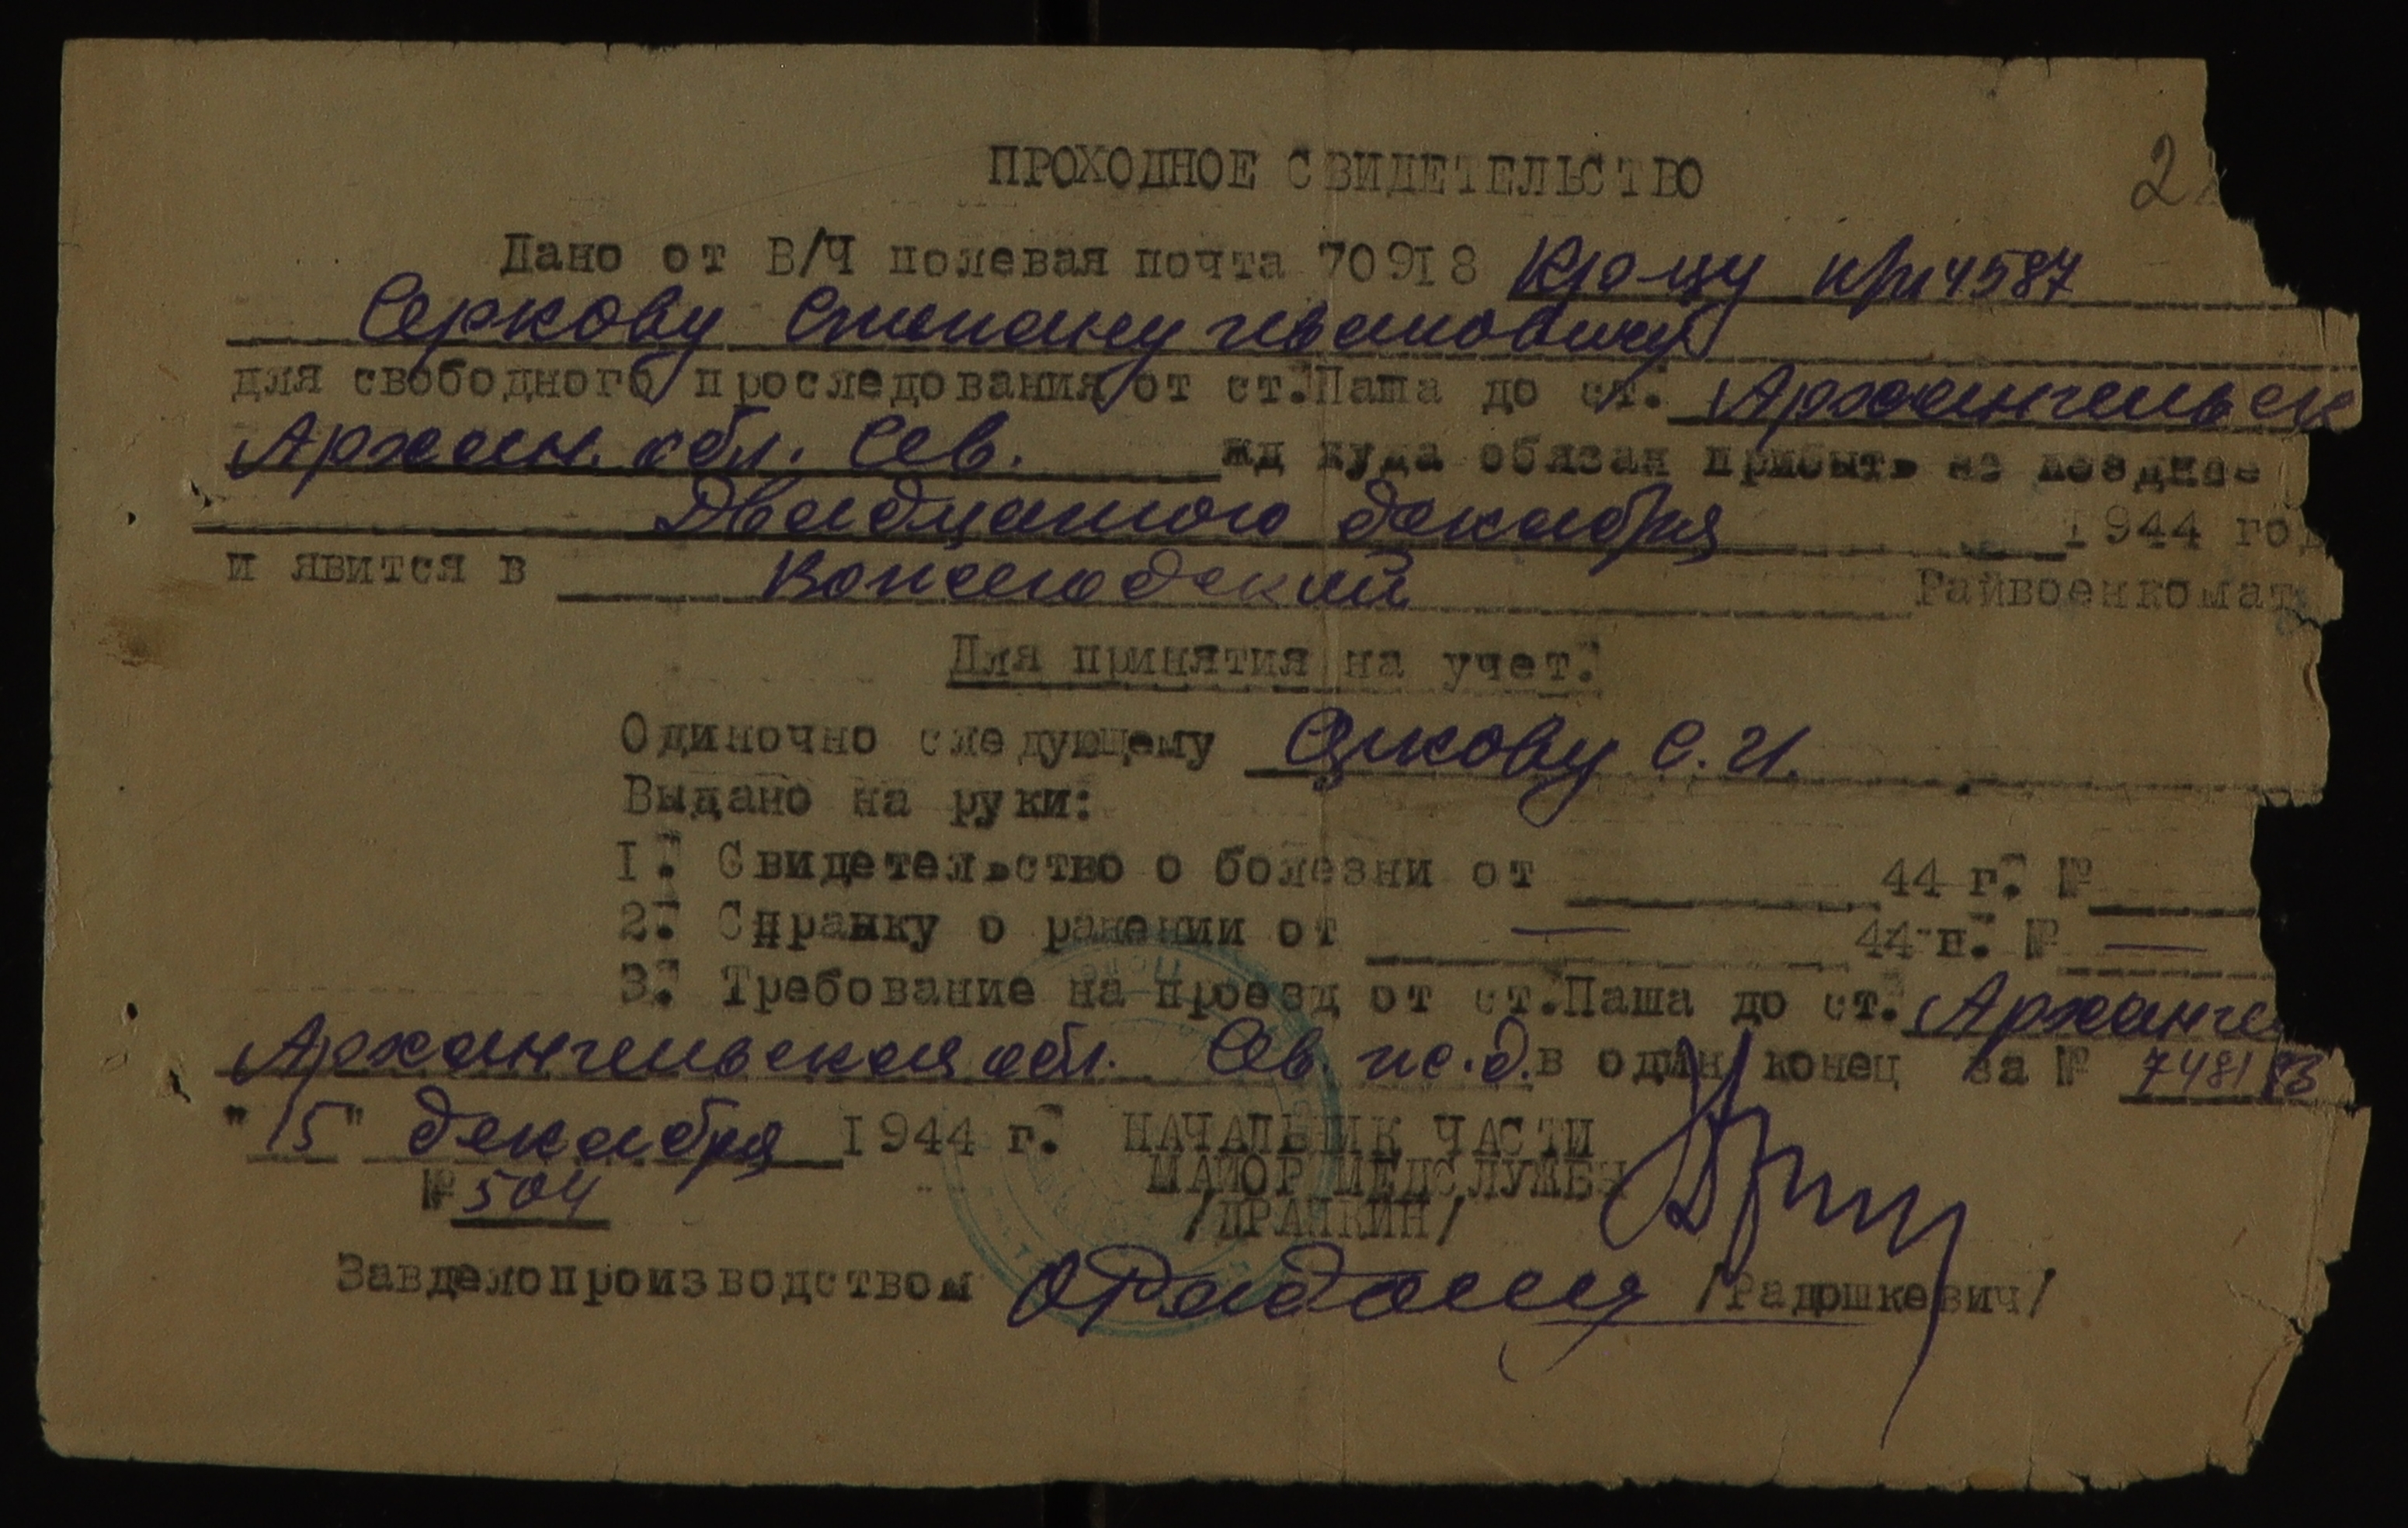 2
ПРОХОДНОЕ СВИДЕТЕЛЬСТВО
Дано от В/Ч полевая почта 70918 Кр-цу 4587
Серкову Степану Ивановичу
для свободного проследования от ст. Паша до ст. Архангельск
Архан. обл. Сев. жд куда обязан прибыть не позднее
Двадцатого декабря 1944 год
и явится в Коношодский Райвоенкомат
Для принятия на учет.
Одиночно следующему Серкову С.И.
Выдано на руки:
1. Свидетельство о болезни от 44 г. №
2. Справку о ранении от — 44 г. № —
3. Требование на проезд от ст. Паша до ст. Арханге
Архангельская обл. Сев. ж.д. в один конец за № 748183
"15" декабря 1944 г. НАЧАЛЬНИК ЧАСТИ
МАЙОР МЕДСЛУЖБЫ
№ 504 /ДРАПКИН/
Завделопроизводством /Радюшкевич/